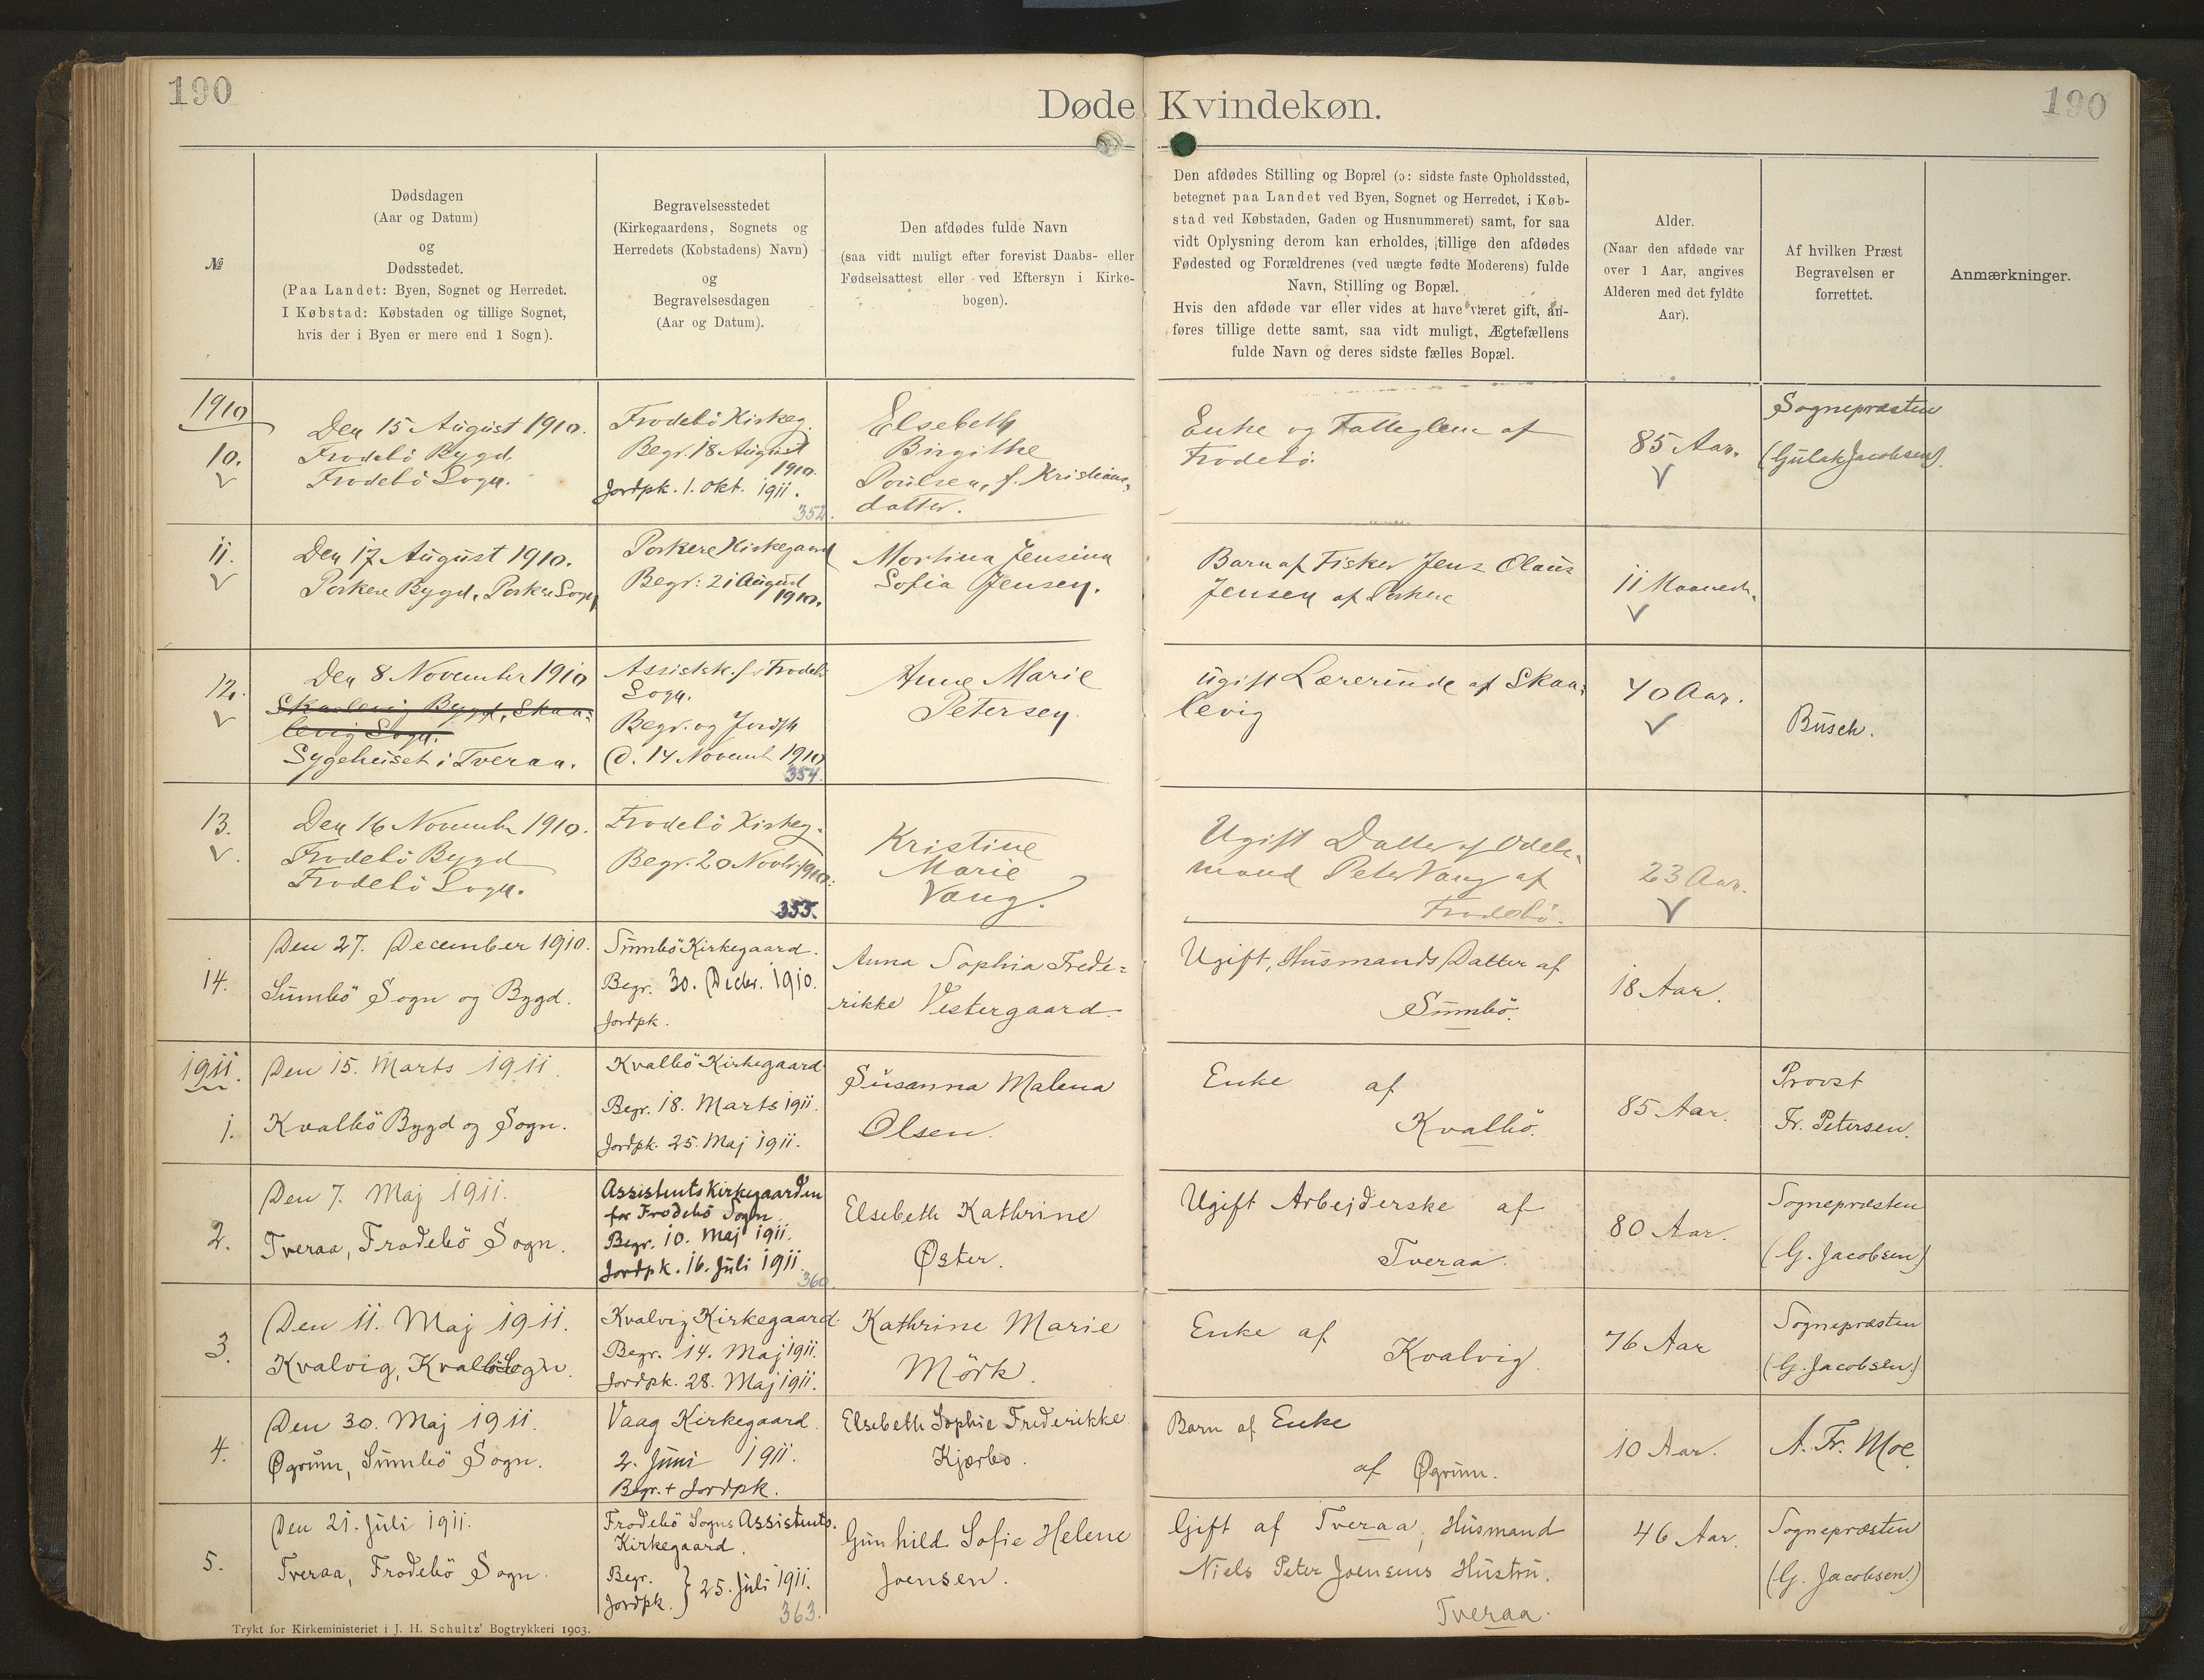 190
Døde Kvindekøn.
190
№
Dødsdagen
(Aar og Datum)
og
Dødsstedet.
(Paa Landet: Byen, Sognet og Herredet.
I Købstad: Købstaden og tillige Sognet,
hvis der i Byen er mere end 1 Sogn).
Begravelsesstedet
(Kirkegaardens, Sognets og
Herredets (Købstadens) Navn)
og
Begravelsesdagen
(Aar og Datum).
Den afdødes fulde Navn
(saa vidt muligt efter forevist Daabs- eller
Fødselsattest eller ved Eftersyn i Kirke-
bogen).
Den afdødes Stilling og Bopæl (ɔ: sidste faste Opholdssted,
betegnet paa Landet ved Byen, Sognet og Herredet, i Køb-
stad ved Købstaden, Gaden og Husnummeret) samt, for saa
vidt Oplysning derom kan erholdes, tillige den afdødes
Fødested og Forældrenes (ved uægte fødte Moderens) fulde
Navn, Stilling og Bopæl.
Hvis den afdøde var eller vides at have været gift, an-
føres tillige dette samt, saa vidt muligt, Ægtefællens
fulde Navn og deres sidste fælles Bopæl.
Alder.
(Naar den afdøde var
over 1 Aar, angives
Alderen med det fyldte
Aar).
Af hvilken Præst
Begravelsen er
forrettet.
Anmærkninger.
1910
10.
Den 15 August 1910.
Frodebö Bygd
Frodebö Sogn.
Frodebö Kirkeg.
Begr. 18 August
1910.
Jordpk. 1. Okt. 1911.
352.
Elsebeth
Birgithe
Poulsen, f. Kristians-
datter.
Enke og Fattiglem af
Frodebö.
85 Aar.
Sognepræsten
(Gulak Jacobsen).
11.
Den 17 August 1910.
Porkere Bygd, Porkere Sogn
Porkere Kirkegaard
Begr: 21 August
1910.
Mortina Jensina
Sofia Jensen.
Barn af Fisker Jens Olaus
Jensen af Porkere
11 Maaneder.
12.
Den 8 November 1910
Skaalevig Bygd, Skaa-
levig Sogn.
Sygehuset i Tveraa.
Assistkk. for Frodebö
Sogn.
Begr. og Jordpk
d. 14 Novemb 1910
354.
Anne Marie
Petersen
ugift Lærerinde af Skaa-
levig
40 Aar.
Busch.
13.
Den 16 November 1910.
Frodebö Bygd
Frodebö Sogn.
Frodebö Kirkeg.
Begr. 20 Novbr. 1910.
355.
Kristine
Marie
Vang.
Ugift Datter af Odels-
mand Peter Vang af
Frodebö.
23 Aar.
14.
Den 27. December 1910.
Sumbö Sogn og Bygd.
Sumbö Kirkegaard.
Begr. 30. Decbr. 1910.
Jordpk.
Anna Sophia Frede-
rikke Vestergaard.
Ugift, Husmands Datter af
Sumbö.
18 Aar.
1911.
1.
Den 15. Marts 1911.
Kvalbö Bygd og Sogn.
Kvalbö Kirkegaard
Begr. 18. Marts 1911.
Jordpk. 25. Maj 1911.
Susanna Malena
Olsen.
Enke af
Kvalbö.
85 Aar.
Provst
Fr. Petersen.
2.
Den 7. Maj 1911.
Tveraa, Frodebö Sogn.
Assistents Kirkegaarden
for Frodebö Sogn
Begr. 10. Maj 1911.
Jordpk. 16. Juli 1911.
360.
Elsebeth Kathrine
Øster.
Ugift Arbejderske af
Tveraa.
80 Aar.
Sognepræsten
(G. Jacobsen)
3.
Den 11. Maj 1911.
Kvalvig, Kvalbö Sogn.
Kvalvig Kirkegaard.
Begr. 14. Maj 1911.
Jordpk. 28. Maj 1911.
Kathrine Marie
Mörk.
Enke af
Kvalvig.
76 Aar
Sognepræsten
(G. Jacobsen)
4.
Den 30. Maj 1911.
Øgrum, Sumbö Sogn.
Vaag Kirkegaard.
2. Juni 1911.
Begr. + Jordpk.
Elsebeth Sophie Frederikke
Kjærbo.
Barn af Enke
af Øgrum.
10 Aar.
A. Fr. Moe
5.
Den 21. Juli 1911.
Tveraa, Frodebö Sogn.
Frodebö Sogns Assistents.
Kirkegaard.
Begr.
Jordpk. } 25. Juli 1911.
363.
Gunhild Sofie Helene
Joensen.
Gift af Tveraa, Husmand
Niels Peter Joensens Hustru.
Tveraa.
46 Aar.
Sognepræsten
(G. Jacobsen)
Trykt for Kirkeministeriet i J. H. Schultz' Bogtrykkeri 1903.